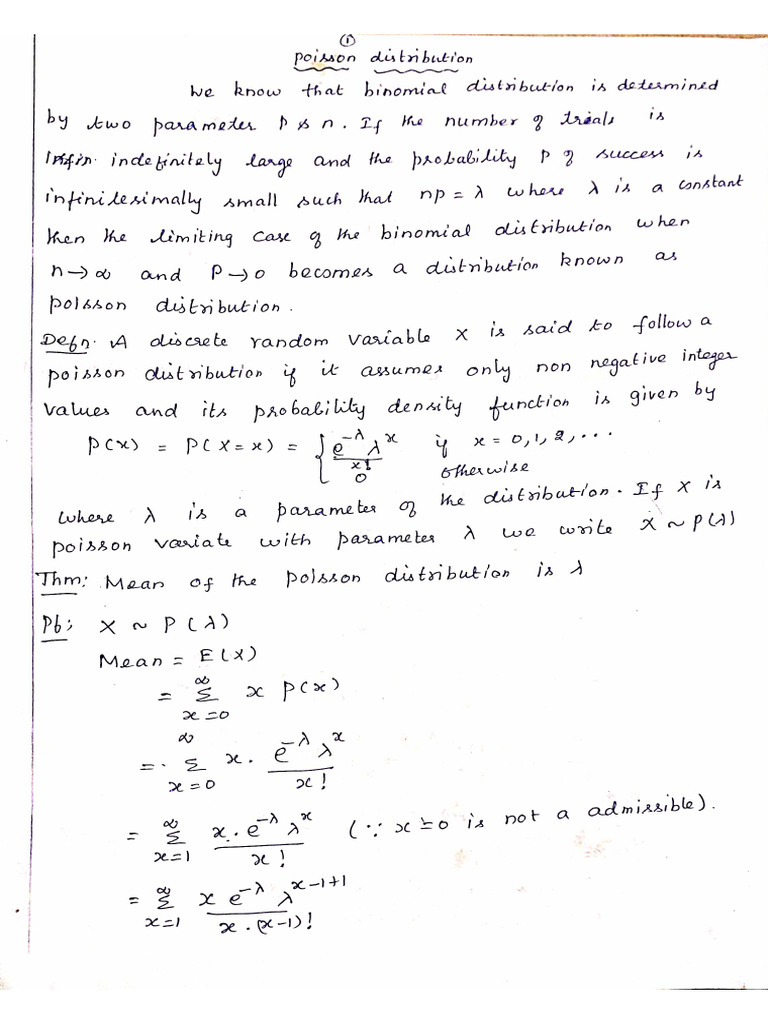 ①
poisson distribution
We know that binomial distribution is determined
by two parameter P & n. If the number of trials is
indefinitely large and the probability P of success is
infinitesimally small such that np = λ where λ is a constant
then the limiting case of the binomial distribution when
n→∞ and P→0 becomes a distribution known as
poisson distribution.
Defn. A discrete random variable X is said to follow a
poisson distribution if it assumes only non negative integer
values and its probability density function is given by
P(x) = P(X=x) = { e^{-λ} λ^x / x! if x = 0,1,2,...
0 otherwise
where λ is a parameter of the distribution. If X is
poisson variate with parameter λ we write X ~ P(λ)
Thm: Mean of the poisson distribution is λ
Pb: X ~ P(λ)
Mean = E(X)
= ∑_{x=0}^{∞} x P(x)
= ∑_{x=0}^{∞} x · e^{-λ} λ^x / x!
= ∑_{x=1}^{∞} x · e^{-λ} λ^x / x! (∵ x=0 is not a admissible).
= ∑_{x=1}^{∞} x e^{-λ} λ^{x-1+1} / x · (x-1)!